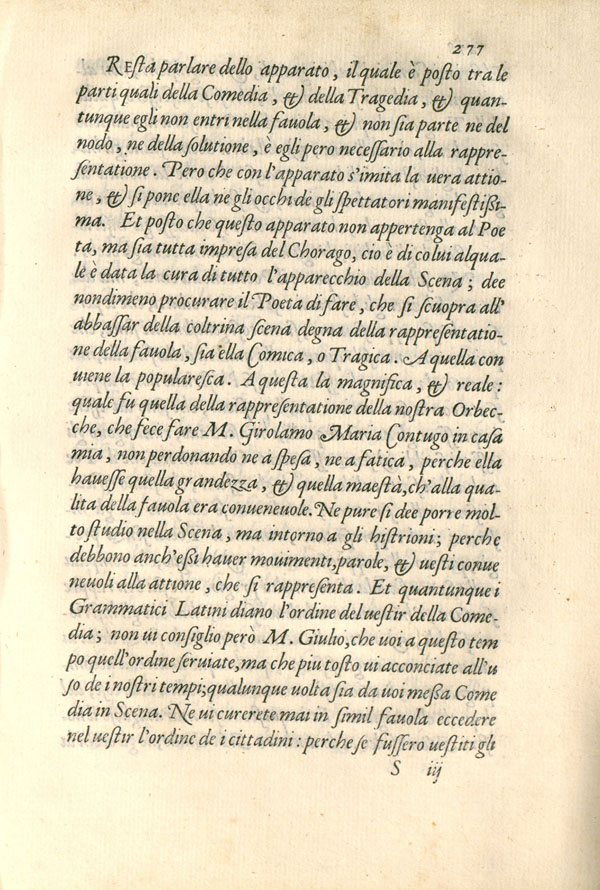 277
REsta parlare dello apparato, il quale è posto tra le
parti quali della Comedia, & della Tragedia, & quan-
tunque egli non entri nella fauola, & non sia parte ne del
nodo, ne della solutione, è egli pero necessario alla rappre-
sentatione. Pero che con l'apparato s'imita la uera attio-
ne, & si pone ella ne gli occhi de gli spettatori manifestißi-
ma. Et posto che questo apparato non appertenga al Poe
ta, ma sia tutta impresa del Chorago, cio è di colui alqua-
le è data la cura di tutto l'apparecchio della Scena; dee
nondimeno procurare il Poeta di fare, che si scuopra all'
abbassar della coltrina scena degna della rappresentatio-
ne della fauola, sia ella Comica, o Tragica. A quella con
uiene la popularesca. A questa la magnifica, & reale:
quale fu quella della rappresentatione della nostra Orbec-
che, che fece fare M. Girolamo Maria Contugo in casa
mia, non perdonando ne a spesa, ne a fatica, perche ella
hauesse quella grandezza, & quella maestà, ch'alla qua-
lita della fauola era conueneuole. Ne pure si dee porre mol-
to studio nella Scena, ma intorno a gli histrioni; perche
debbono anch'eßi hauer mouimenti, parole, & uesti conue
neuoli alla attione, che si rappresenta. Et quantunque i
Grammatici Latini diano l'ordine del uestir della Come-
dia; non ui consiglio però M. Giulio, che uoi a questo tem
po quell'ordine seruiate, ma che piu tosto ui acconciate all'u
so de i nostri tempi; qualunque uolta sia da uoi meßa Come
dia in Scena. Ne ui curerete mai in simil fauola eccedere
nel uestir l'ordine de i cittadini: perche se fussero uestiti gli
S iij